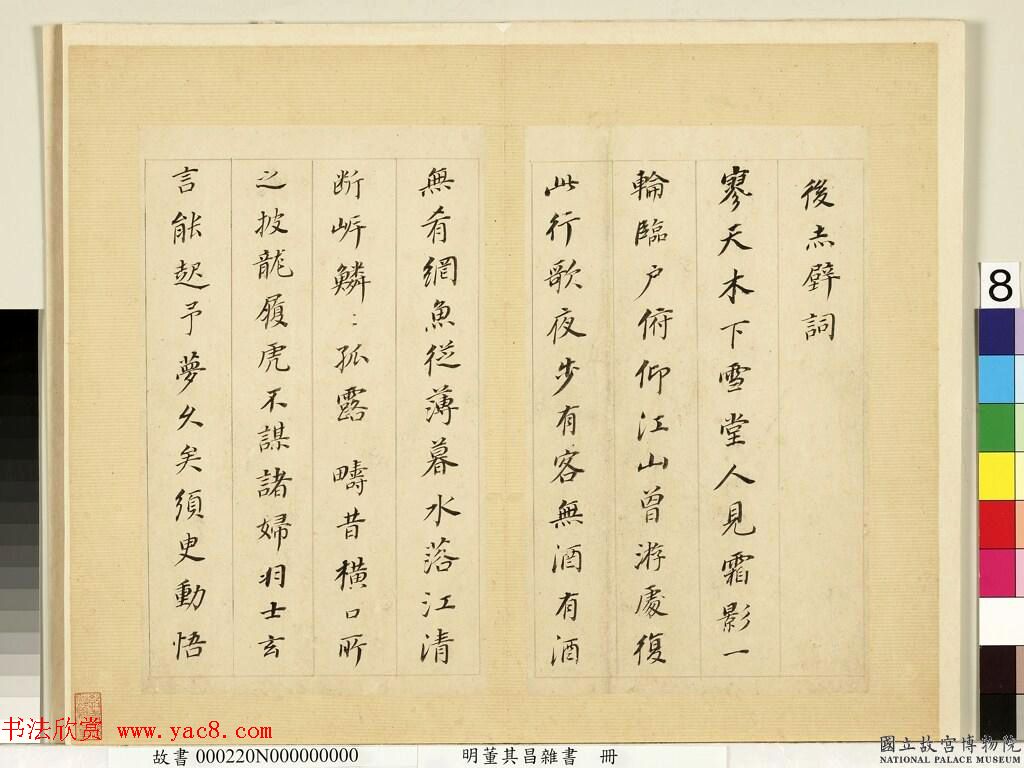 後赤壁詞
寥天木下雪堂人見霜影一
輪臨户俯仰江山曾游處復
此行歌夜步有客無酒有酒
無肴網魚從薄暮水落江清
断岸鱗:孤露疇昔橫口所
之披龍履虎不謀諸婦羽士玄
言能起予夢久矣須臾動悟
8
书法欣赏 www.yac8.com
故書 000220N000000000 明董其昌雜書 冊
國立故宮博物院
NATIONAL PALACE MUSEUM